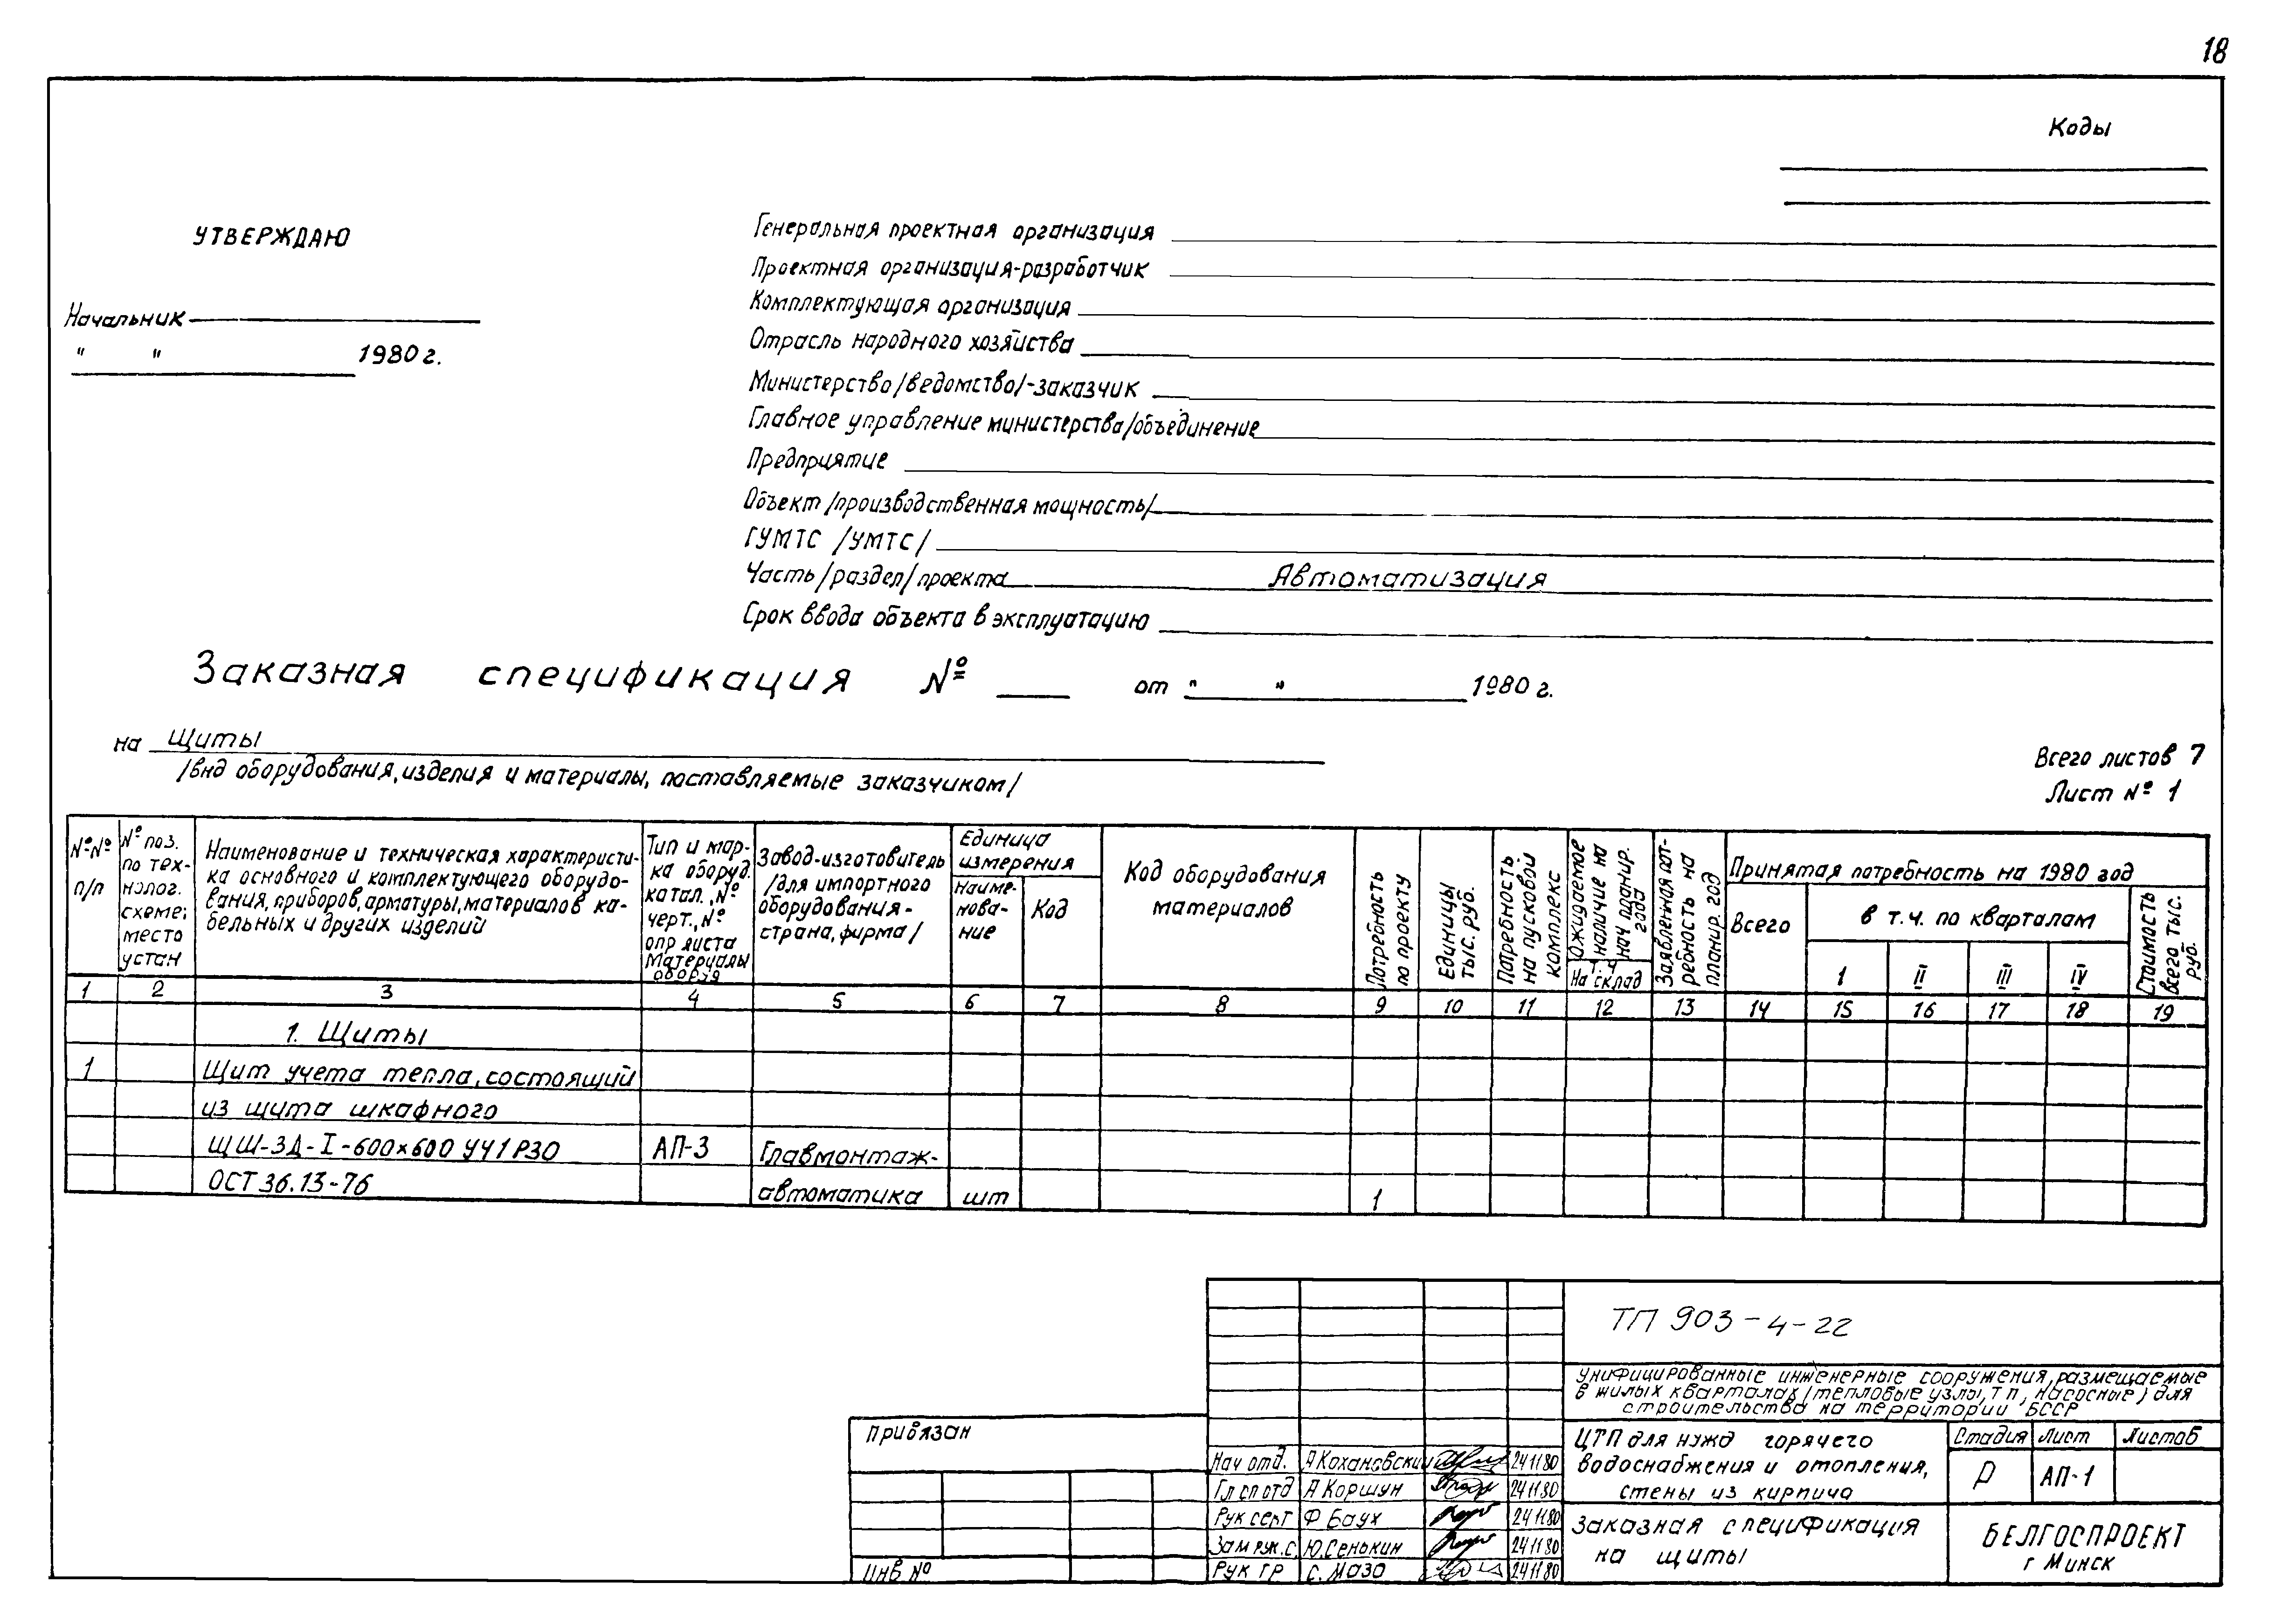 18
Коды
УТВЕРЖДАЮ
Начальник
" " 1980 г.
Генеральная проектная организация
Проектная организация-разработчик
Комплектующая организация
Отрасль народного хозяйства
Министерство/ведомство/-заказчик
Главное управление министерства/объединение
Предприятие
Объект/производственная мощность/
ГУМТС /УМТС/
Часть/раздел/проекта Автоматизация
Срок ввода объекта в эксплуатацию
Заказная спецификация № от " " 1980 г.
на Щиты
/вид оборудования, изделия и материалы, поставляемые заказчиком/
Всего листов 7
Лист № 1
№№ п/п
№ поз. по тех- нолог. схеме; место устан
Наименование и техническая характеристи-
ка основного и комплектующего оборудо-
вания, приборов, арматуры, материалов ка-
бельных и других изделий
Тип и мар-
ка оборуд.
катал., №
черт., №
опр листа
Материалы
оборуд
Завод-изготовитель
/для импортного
оборудования-
страна, фирма/
Единица
измерения
Наиме-
нова-
ние
Код
Код оборудования
материалов
Потребность
по проекту
Единицы
тыс. руб.
Потребность
на пусковой
комплекс
Ожидаемое
наличие на
нач. планир.
года
т. ч
На склад
Заявленная пот-
ребность на
планир. год
Принятая потребность на 1980 год
Всего
в т.ч. по кварталам
1 II III IV
Стоимость
всего тыс.
руб.
1 2 3 4 5 6 7 8 9 10 11 12 13 14 15 16 17 18 19
1. Щиты
1 Щит учета тепла, состоящий
из щита шкафного
ЩШ-ЗД-I-600×600 УЧ1 Р30 АП-3 Главмонтаж-
ОСТ 36.13-76 автоматика шт 1
ТП 903-4-22
Унифицированные инженерные сооружения, размещаемые
в жилых кварталах/тепловые узлы, ТП, насосные/ для
строительства на территории БССР
Привязан
Инв №
Нач отд. А Кохановский 24 11 80
Гл сп отд А Коршун 24 11 80
Рук сект Ф Баух 24 11 80
Зам рук. с. Ю. Сенькин 24 11 80
Рук ГР С. Мазо 24 11 80
ЦТП для нужд горячего
водоснабжения и отопления,
стены из кирпича
Стадия Лист Листов
Р АП-1
Заказная спецификация
на щиты
БЕЛГОСПРОЕКТ
г Минск